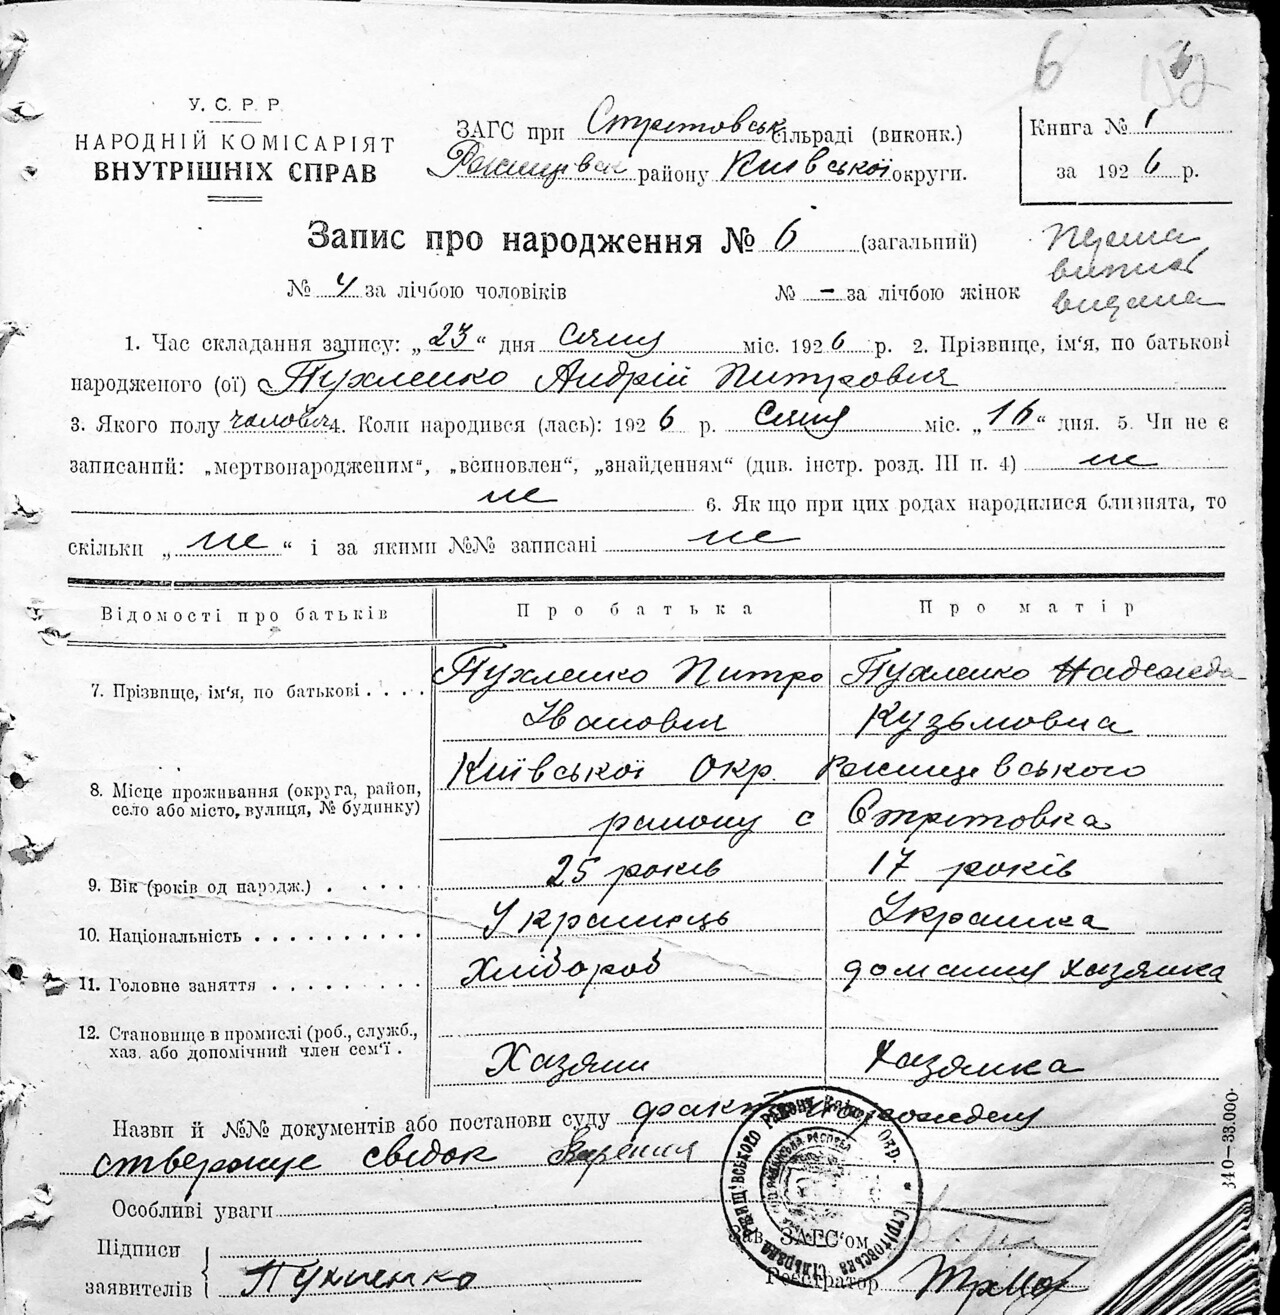 6
У. С. Р. Р.
НАРОДНІЙ КОМІСАРІЯТ
ВНУТРІШНІХ СПРАВ
ЗАГС при Стритовськ сільраді (виконк.)
Ржищевск району Київської округи.
Книга № 1
за 1926 р.
Запис про народження № 6 (загальний)
Перша
виписка
видана
№ 4 за лічбою чоловіків № – за лічбою жінок
1. Час складання запису: „23“ дня Січня міс. 1926 р. 2. Прізвище, ім'я, по батькові
народженого (ої) Пухленко Андрій Питрович
3. Якого полу чоловіч 4. Коли народився (лась): 1926 р. Січня міс. „16“ дня. 5. Чи не є
записаний: „мертвонародженим“, „всиновлен“, „знайденням“ (див. інстр. розд. III п. 4) не
не 6. Як що при цих родах народилися близнята, то
скільки „не“ і за якими №№ записані не
Відомості про батьків Про батька Про матір
7. Прізвище, ім'я, по батькові . . . . Пухленко Питро Пухленко Надежда
Іванович Кузьмовна
8. Місце проживання (округа, район, село або місто, вулиця, № будинку) Київської Окр. Ржищевського
району с Стритовка
9. Вік (років од народж.) . . . . . 25 років 17 років
10. Національність . . . . . . . . . . Українець Украинка
11. Головне заняття . . . . . . . . . Хлібороб домашня хазяйка
12. Становище в промислі (роб., служб.,
хаз. або допомічний член сем'ї . Хазяин хазяйка
Назви й №№ документів або постанови суду факт
ствержує свідок
Особливі уваги
Підписи
заявителів Пухленко
Зав. ЗАГС'ом
Реєстратор
340—33.000